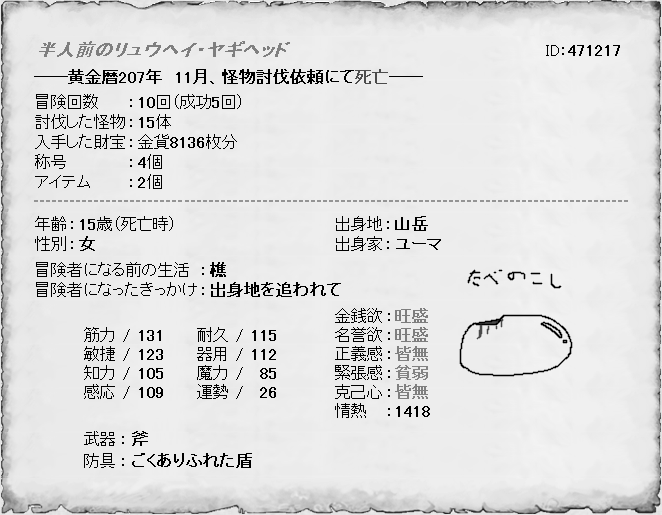 半人前のリュウヘイ・ヤギヘッド
ID:471217
――黄金暦207年　11月、怪物討伐依頼にて死亡――
冒険回数　：10回(成功5回)
討伐した怪物：15体
入手した財宝：金貨8136枚分
称号　：4個
アイテム　：2個
年齢：15歳(死亡時)
出身地：山岳
性別：女
出身家：ユーマ
冒険者になる前の生活 ：樵
冒険者になったきっかけ：出身地を追われて
たべのこし
筋力 / 131　耐久 / 115
敏捷 / 123　器用 / 112
知力 / 105　魔力 / 85
感応 / 109　運勢 / 26
金銭欲：旺盛
名誉欲：旺盛
正義感：皆無
緊張感：貧弱
克己心：皆無
情熱　：1418
武器：斧
防具：ごくありふれた盾